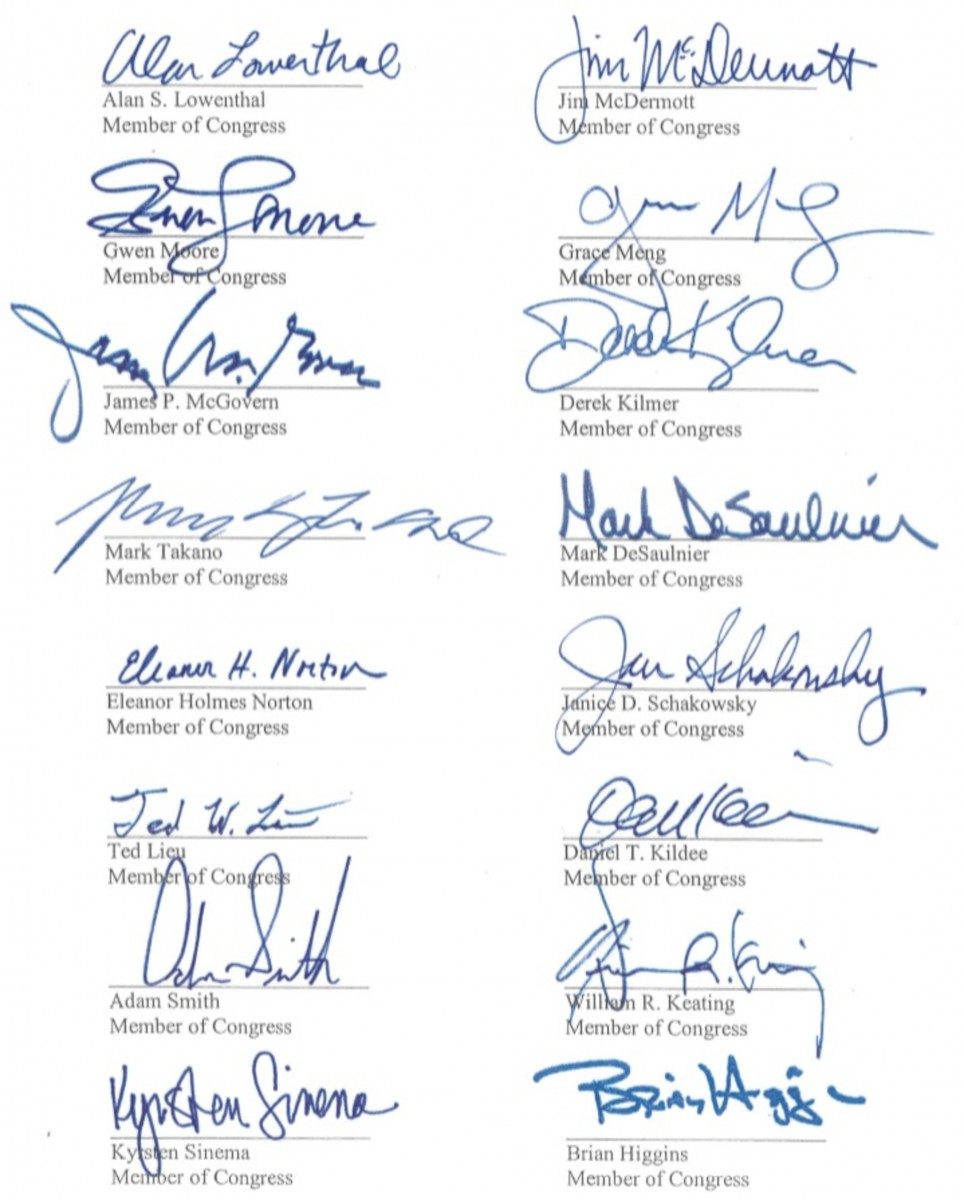 Alan Lowenthal
Alan S. Lowenthal
Member of Congress
Jim McDermott
Jim McDermott
Member of Congress
Gwen S Moore
Gwen Moore
Member of Congress
Grace Meng
Member of Congress
James P. McGovern
Member of Congress
Derek Kilmer
Derek Kilmer
Member of Congress
Mark Takano
Member of Congress
Mark DeSaulnier
Mark DeSaulnier
Member of Congress
Eleanor H. Norton
Eleanor Holmes Norton
Member of Congress
Jan Schakowsky
Janice D. Schakowsky
Member of Congress
Ted W. Lieu
Ted Lieu
Member of Congress
Daniel T. Kildee
Member of Congress
Adam Smith
Adam Smith
Member of Congress
William R. Keating
Member of Congress
Kyrsten Sinema
Kyrsten Sinema
Member of Congress
Brian Higgins
Brian Higgins
Member of Congress